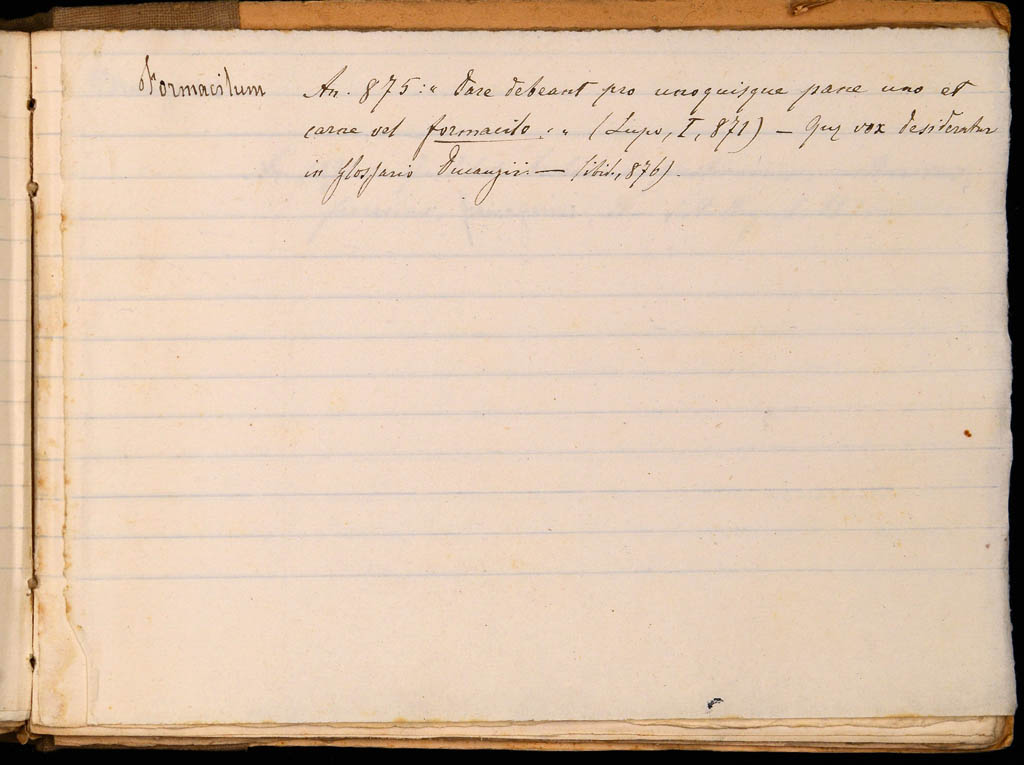 Formacitum An. 875: " Dare debeant pro unoquisque pane uno et
carne vel formacito : " (Lupo, I, 871) — Quę vox desideratur
in Glossario Ducangii. — (ibid., 876).